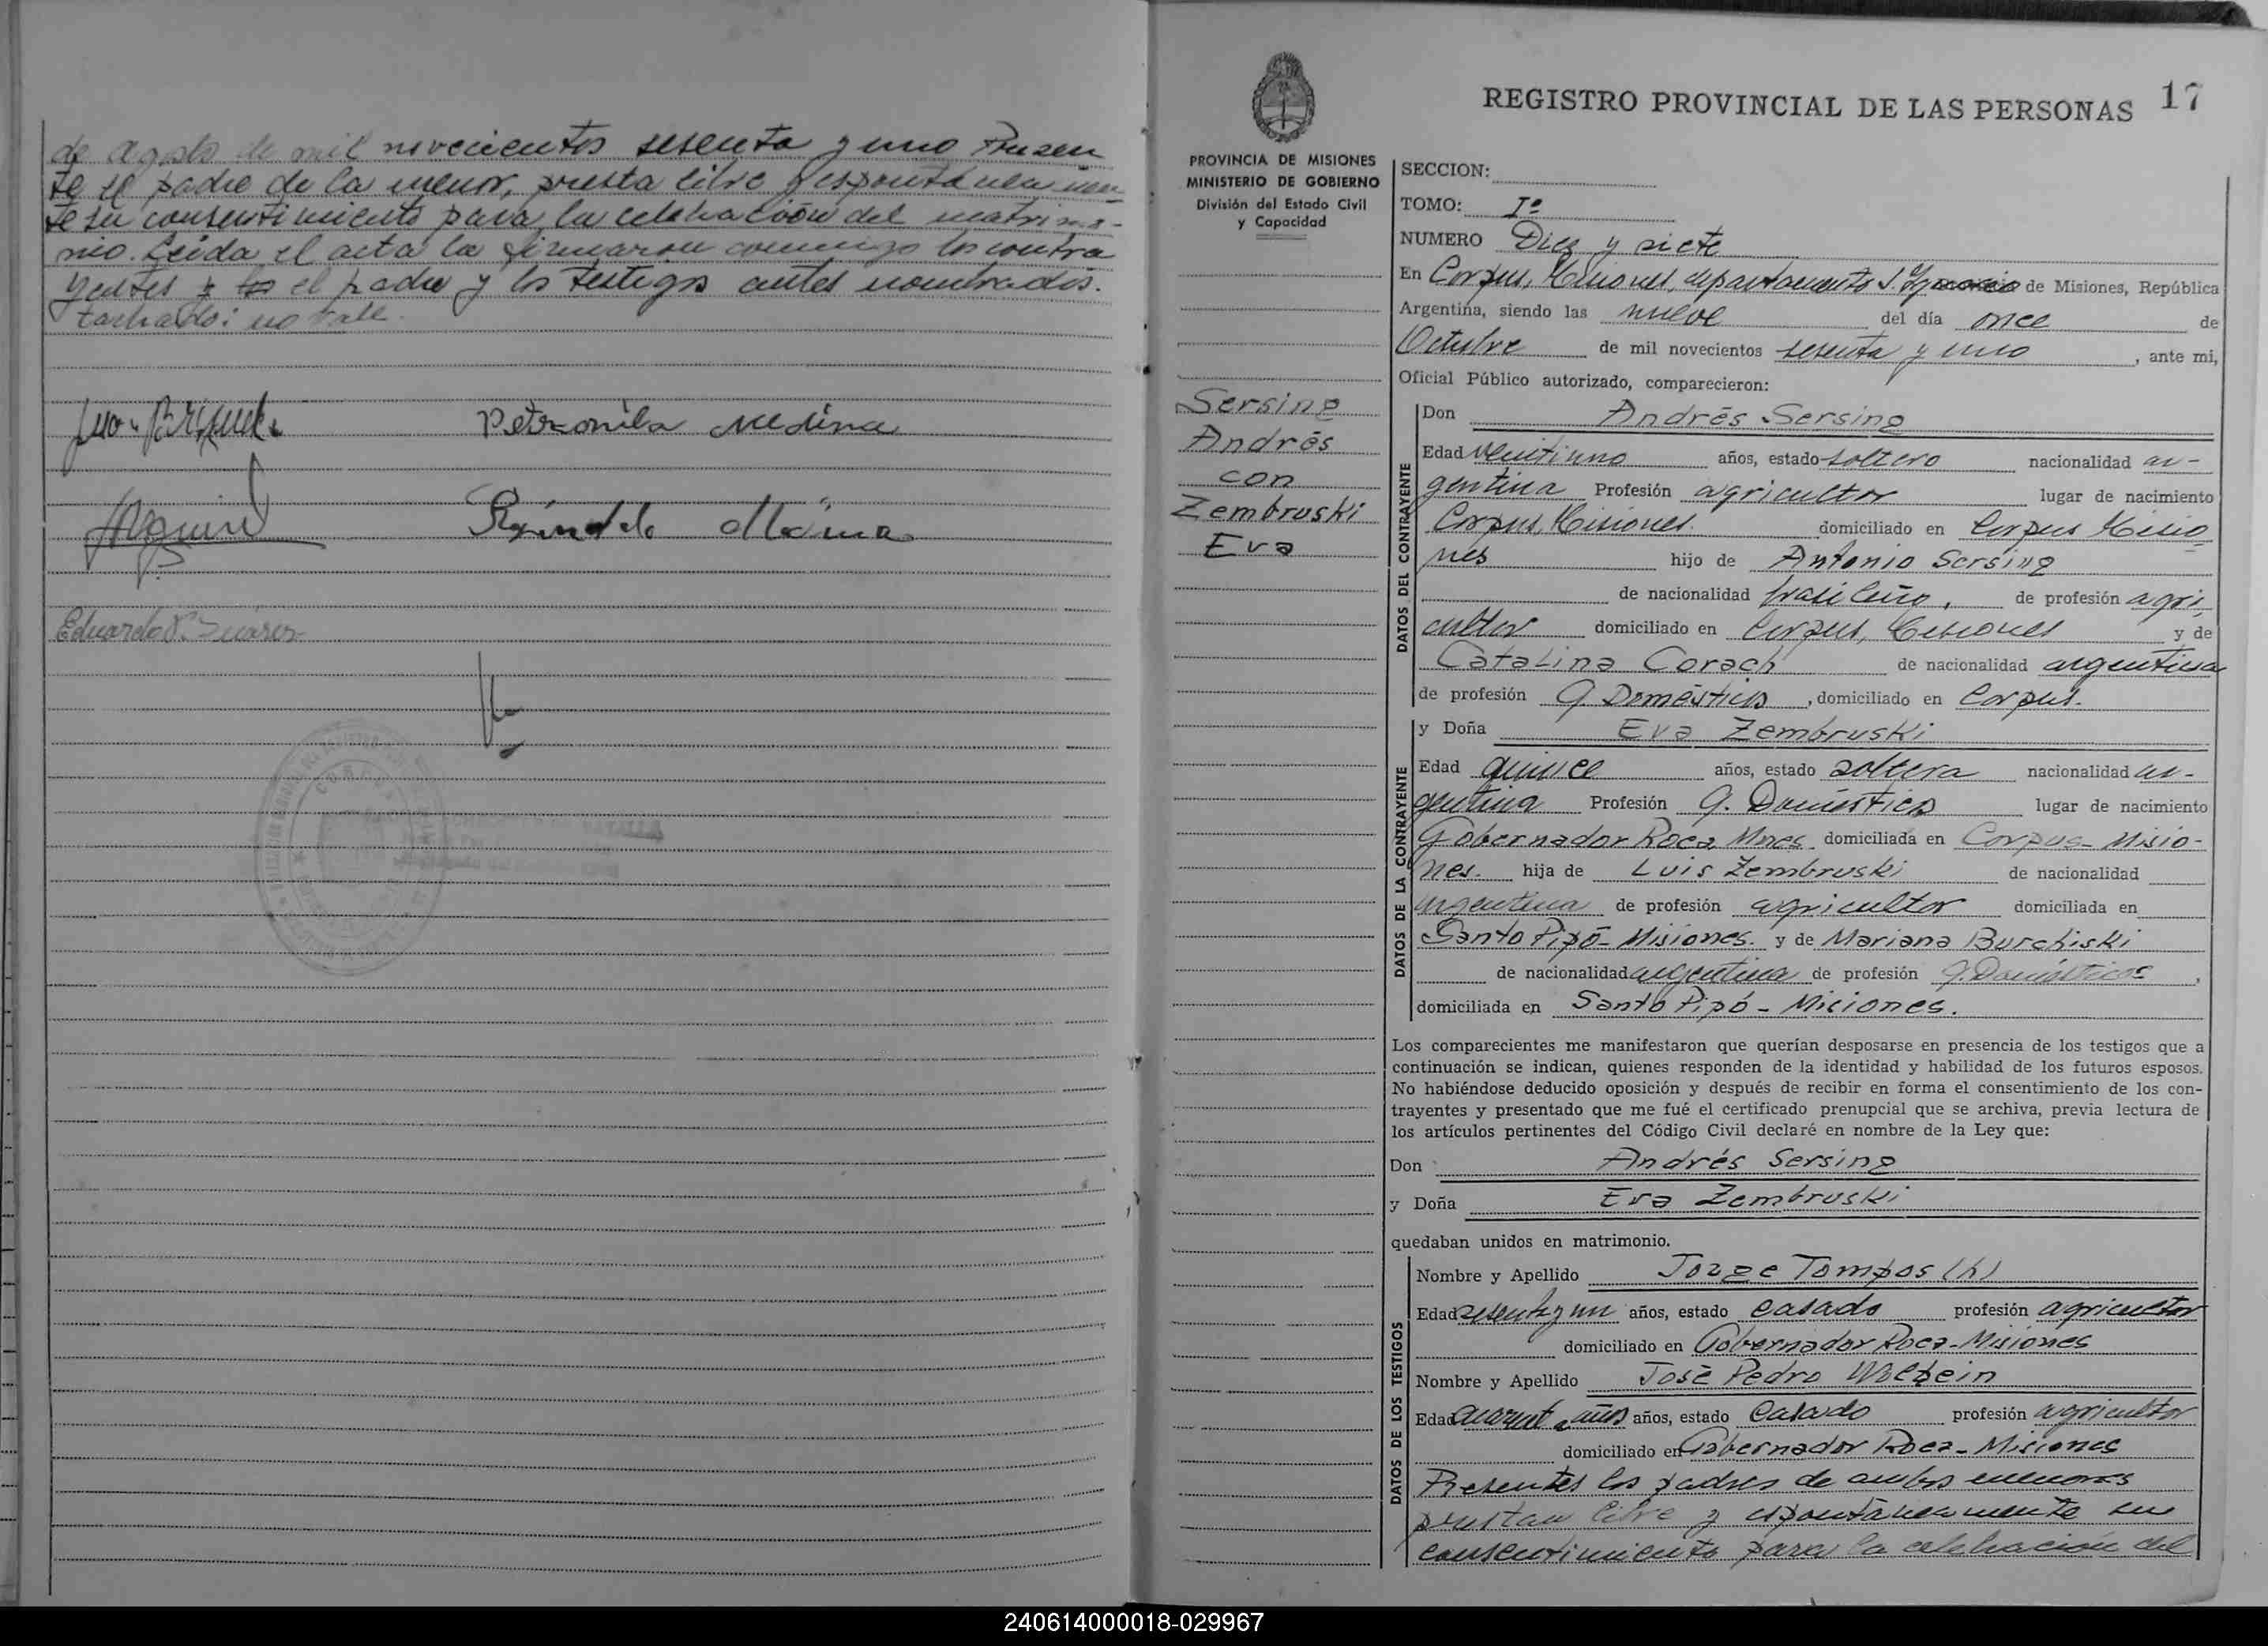 de agosto de mil novecientos sesenta y uno Presen
te el padre de la menor, presta libre y espontáneamen
te su consentimiento para la celebración del matrimo-
nio. Leida el acta la firmaron conmigo los contra
yentes y los el padre y los testigos antes nombrados.
tachado: no vale.
Petronila Medina
Eduardo Suárez
REGISTRO PROVINCIAL DE LAS PERSONAS 17
PROVINCIA DE MISIONES
MINISTERIO DE GOBIERNO
División del Estado Civil
y Capacidad
Sersing
Andrés
con
Zembruski
Eva
SECCION:
TOMO: Iº
NUMERO Diez y siete
En Corpus, Misiones, departamento S. Ignacio de Misiones, República
Argentina, siendo las nueve del día once de
Octubre de mil novecientos sesenta y uno, ante mi,
Oficial Público autorizado, comparecieron:
DATOS DEL CONTRAYENTE
Don Andrés Sersing
Edad veintiuno años, estado soltero nacionalidad ar-
gentina Profesión agricultor lugar de nacimiento
Corpus, Misiones. domiciliado en Corpus Misio
nes hijo de Antonio Sersing
de nacionalidad brasileño, de profesión agri
cultor domiciliado en Corpus, Misiones y de
Catalina Corach de nacionalidad argentina
de profesión Q. Domésticos, domiciliado en Corpus.
DATOS DE LA CONTRAYENTE
y Doña Eva Zembruski
Edad quince años, estado soltera nacionalidad ar-
gentina Profesión Q. Domésticos lugar de nacimiento
Gobernador Roca Mnes. domiciliada en Corpus- Misio-
nes. hija de Luis Zembruski de nacionalidad
argentina de profesión agricultor domiciliada en
Santo Pipó- Misiones. y de Mariana Burchiski
de nacionalidad argentina de profesión Q. Domésticos,
domiciliada en Santo Pipó - Misiones.
Los comparecientes me manifestaron que querían desposarse en presencia de los testigos que a
continuación se indican, quienes responden de la identidad y habilidad de los futuros esposos.
No habiéndose deducido oposición y después de recibir en forma el consentimiento de los con-
trayentes y presentado que me fué el certificado prenupcial que se archiva, previa lectura de
los artículos pertinentes del Código Civil declaré en nombre de la Ley que:
Don Andrés Sersing
y Doña Eva Zembruski
quedaban unidos en matrimonio.
DATOS DE LOS TESTIGOS
Nombre y Apellido Jorge Tompos (h)
Edad sesenta y un años, estado casado profesión agricultor
domiciliado en Gobernador Roca-Misiones
Nombre y Apellido José Pedro
Edad cuarenta años años, estado Casado profesión agricultor
domiciliado en Gobernador Roca- Misiones
Presentes los padres de ambos menores
prestan libre y espontáneamente su
consentimiento para la celebración del
240614000018-029967